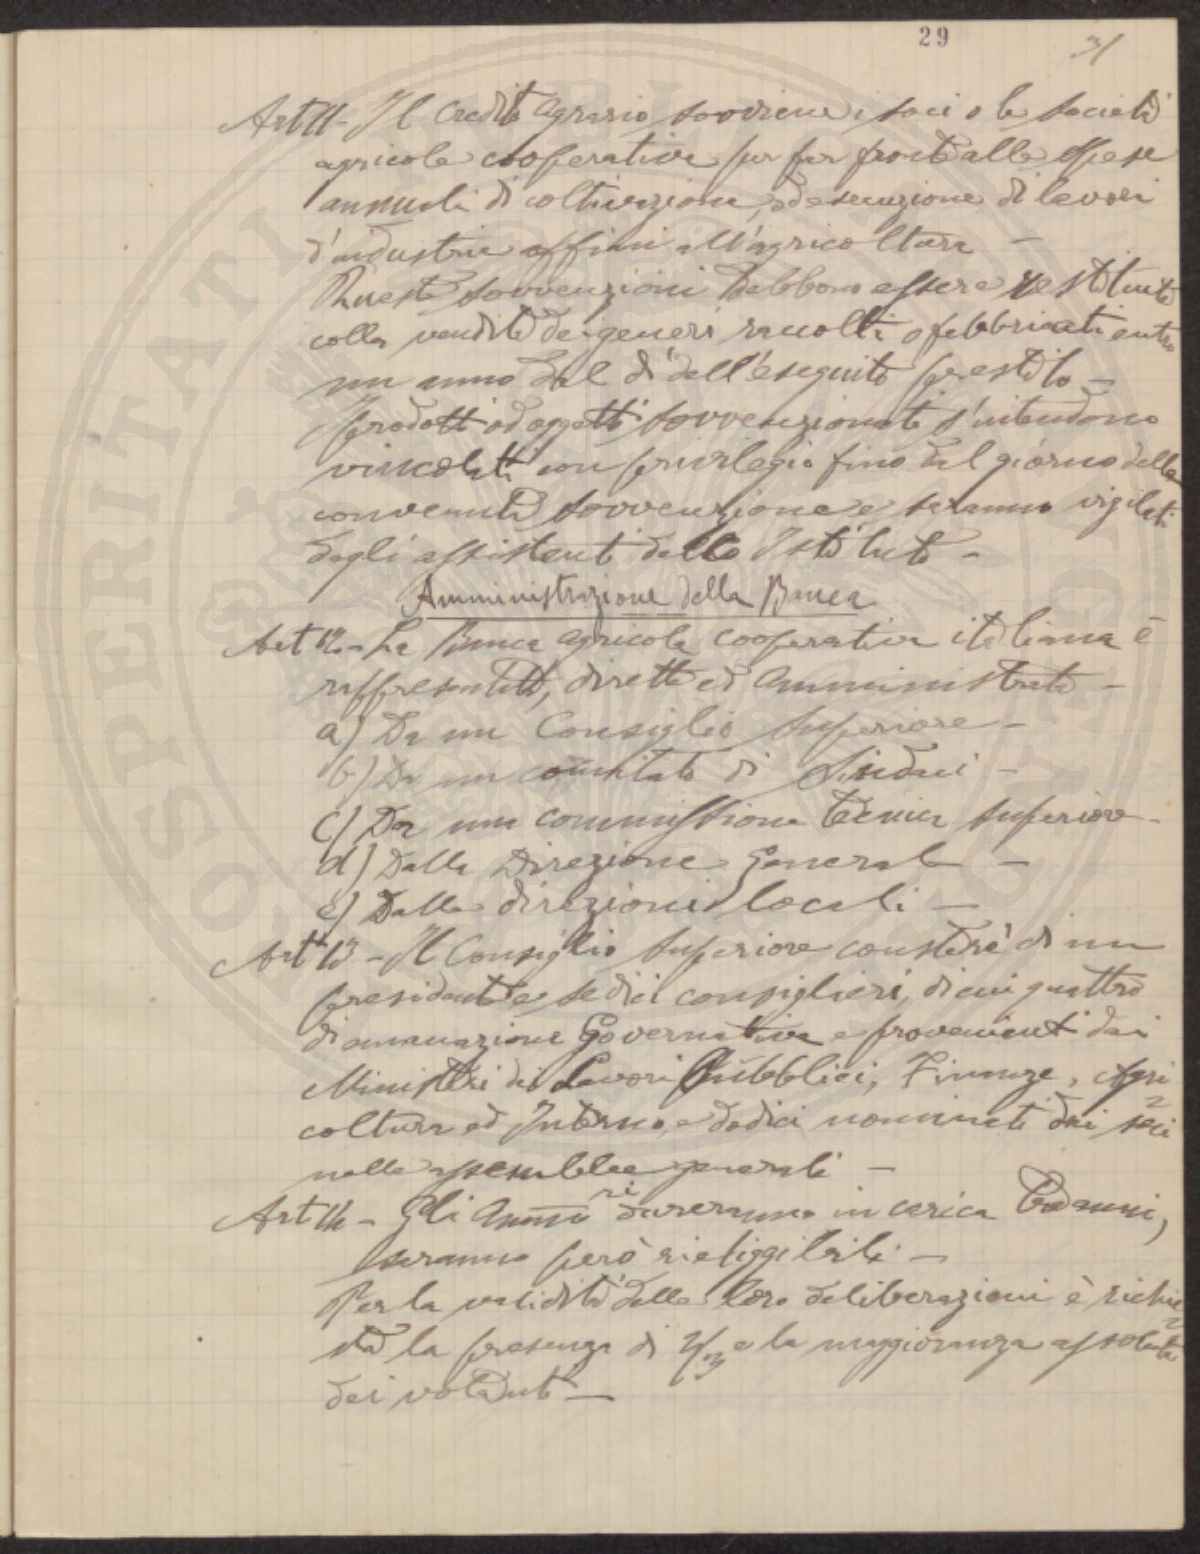 29
31
Art 11 - Il Credito Agrario sovviene i soci o le Società
agricole cooperative per far fronte alle spese
annuali di coltivazione, ed esecuzione di lavori
d'industrie affini all'agricoltura -
Queste sovvenzioni debbono essere restituite
colla vendita dei generi raccolti o fabbricati entro
un anno dal dì dell'eseguito prestito -
I prodotti od oggetti sovvenzionati s'intendono
vincolati con privilegio fino dal giorno della
convenuta sovvenzione e saranno vigilati
dagli assistenti dello Istituto -
Amministrazione della Banca
Art 12 - La Banca agricola cooperativa italiana è
rappresentata, diretta ed amministrata -
a) Da un Consiglio Superiore -
b) Da un comitato di Sindaci -
c) Da una commissione tecnica superiore -
d) Dalla Direzione Generale -
e) Dalle direzioni locali -
Art 13 - Il Consiglio Superiore consterà di un
presidente e sedici consiglieri, di cui quattro
di emanazione Governativa e provenienti dai
Ministeri dei Lavori Pubblici, Finanze, Agri
coltura ed Interno, e dodici nominati dai soci
nelle assemblee generali -
Art 14 - Gli Ammri dureranno in carica tre anni,
saranno però rieliggibili -
Per la validità delle loro deliberazioni è richie
sta la presenza di 2/3 e la maggioranza assoluta
dei votanti -
SOSPERITATI